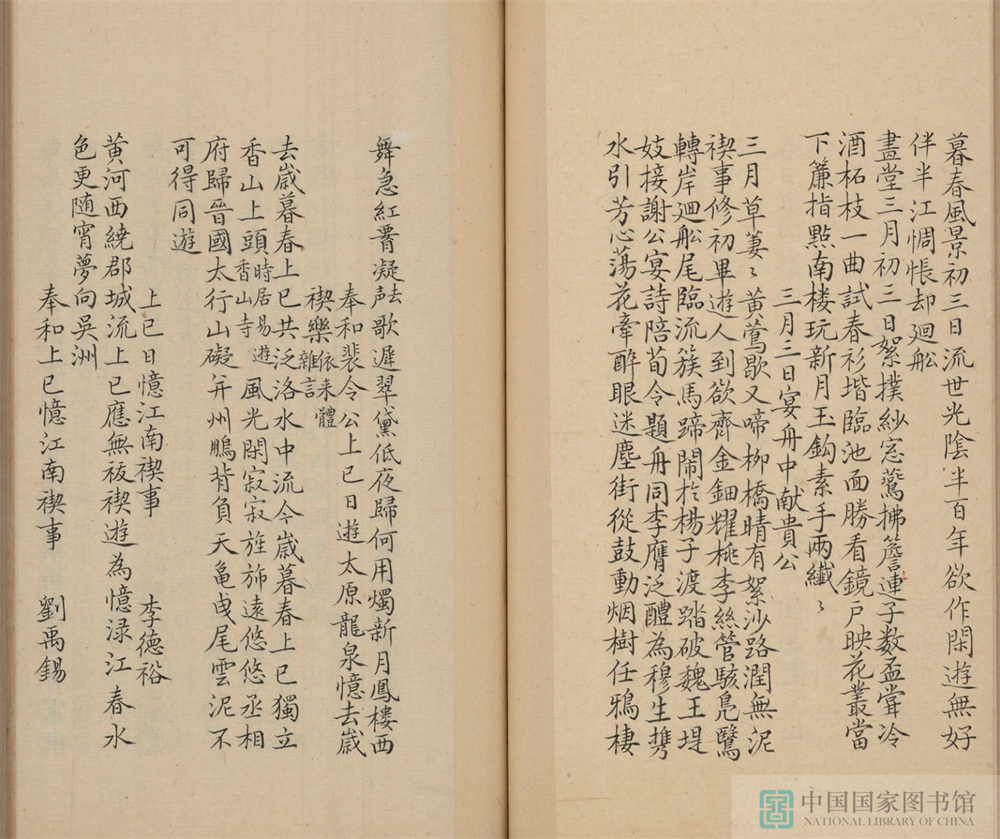 暮春風景初三日流世光陰半百年欲作閑遊無好
伴半江惆悵却廻舩
畫堂三月初三日絮撲紗窓鷰拂簷連子数盃甞冷
酒柘枝一曲試春衫堦臨池面勝看鏡戸映花叢當
下簾指㸃南楼玩新月玉鈎素手兩纖〻
三月三日宴舟中献貴公
三月草萋〻黄鶯歇又啼柳橋晴有絮沙路潤無泥
禊事修初畢遊人到欲齊金鈿耀桃李絲管駭凫鷖
轉岸廻舩尾臨流簇馬蹄鬧扵楊子渡踏破魏王堤
妓接謝公宴詩陪荀令題舟同李膺泛醴為穆生携
水引芳心蕩花牽醉眼迷塵街從鼓動烟樹任鴉棲
舞急紅𦝫凝歌遲翠黛低夜歸何用燭新月鳳樓西
奉和裴令公上巳日遊太原龍泉憶去歳
禊樂依来體雜言
去歳暮春上巳共泛洛水中流今歳暮春上巳獨立
香山上頭時居易遊香山寺風光閑寂寂旌斾遠悠悠丞相
府歸晉國太行山礙并州鵬背負天亀曵尾雲泥不
可得同遊
上巳日憶江南禊事 李德裕
黄河西繞郡城流上巳應無祓禊遊為憶渌江春水
色更随宵夢向吳洲
奉和上巳憶江南禊事 劉禹錫
中国国家图书馆
NATIONAL LIBRARY OF CHINA